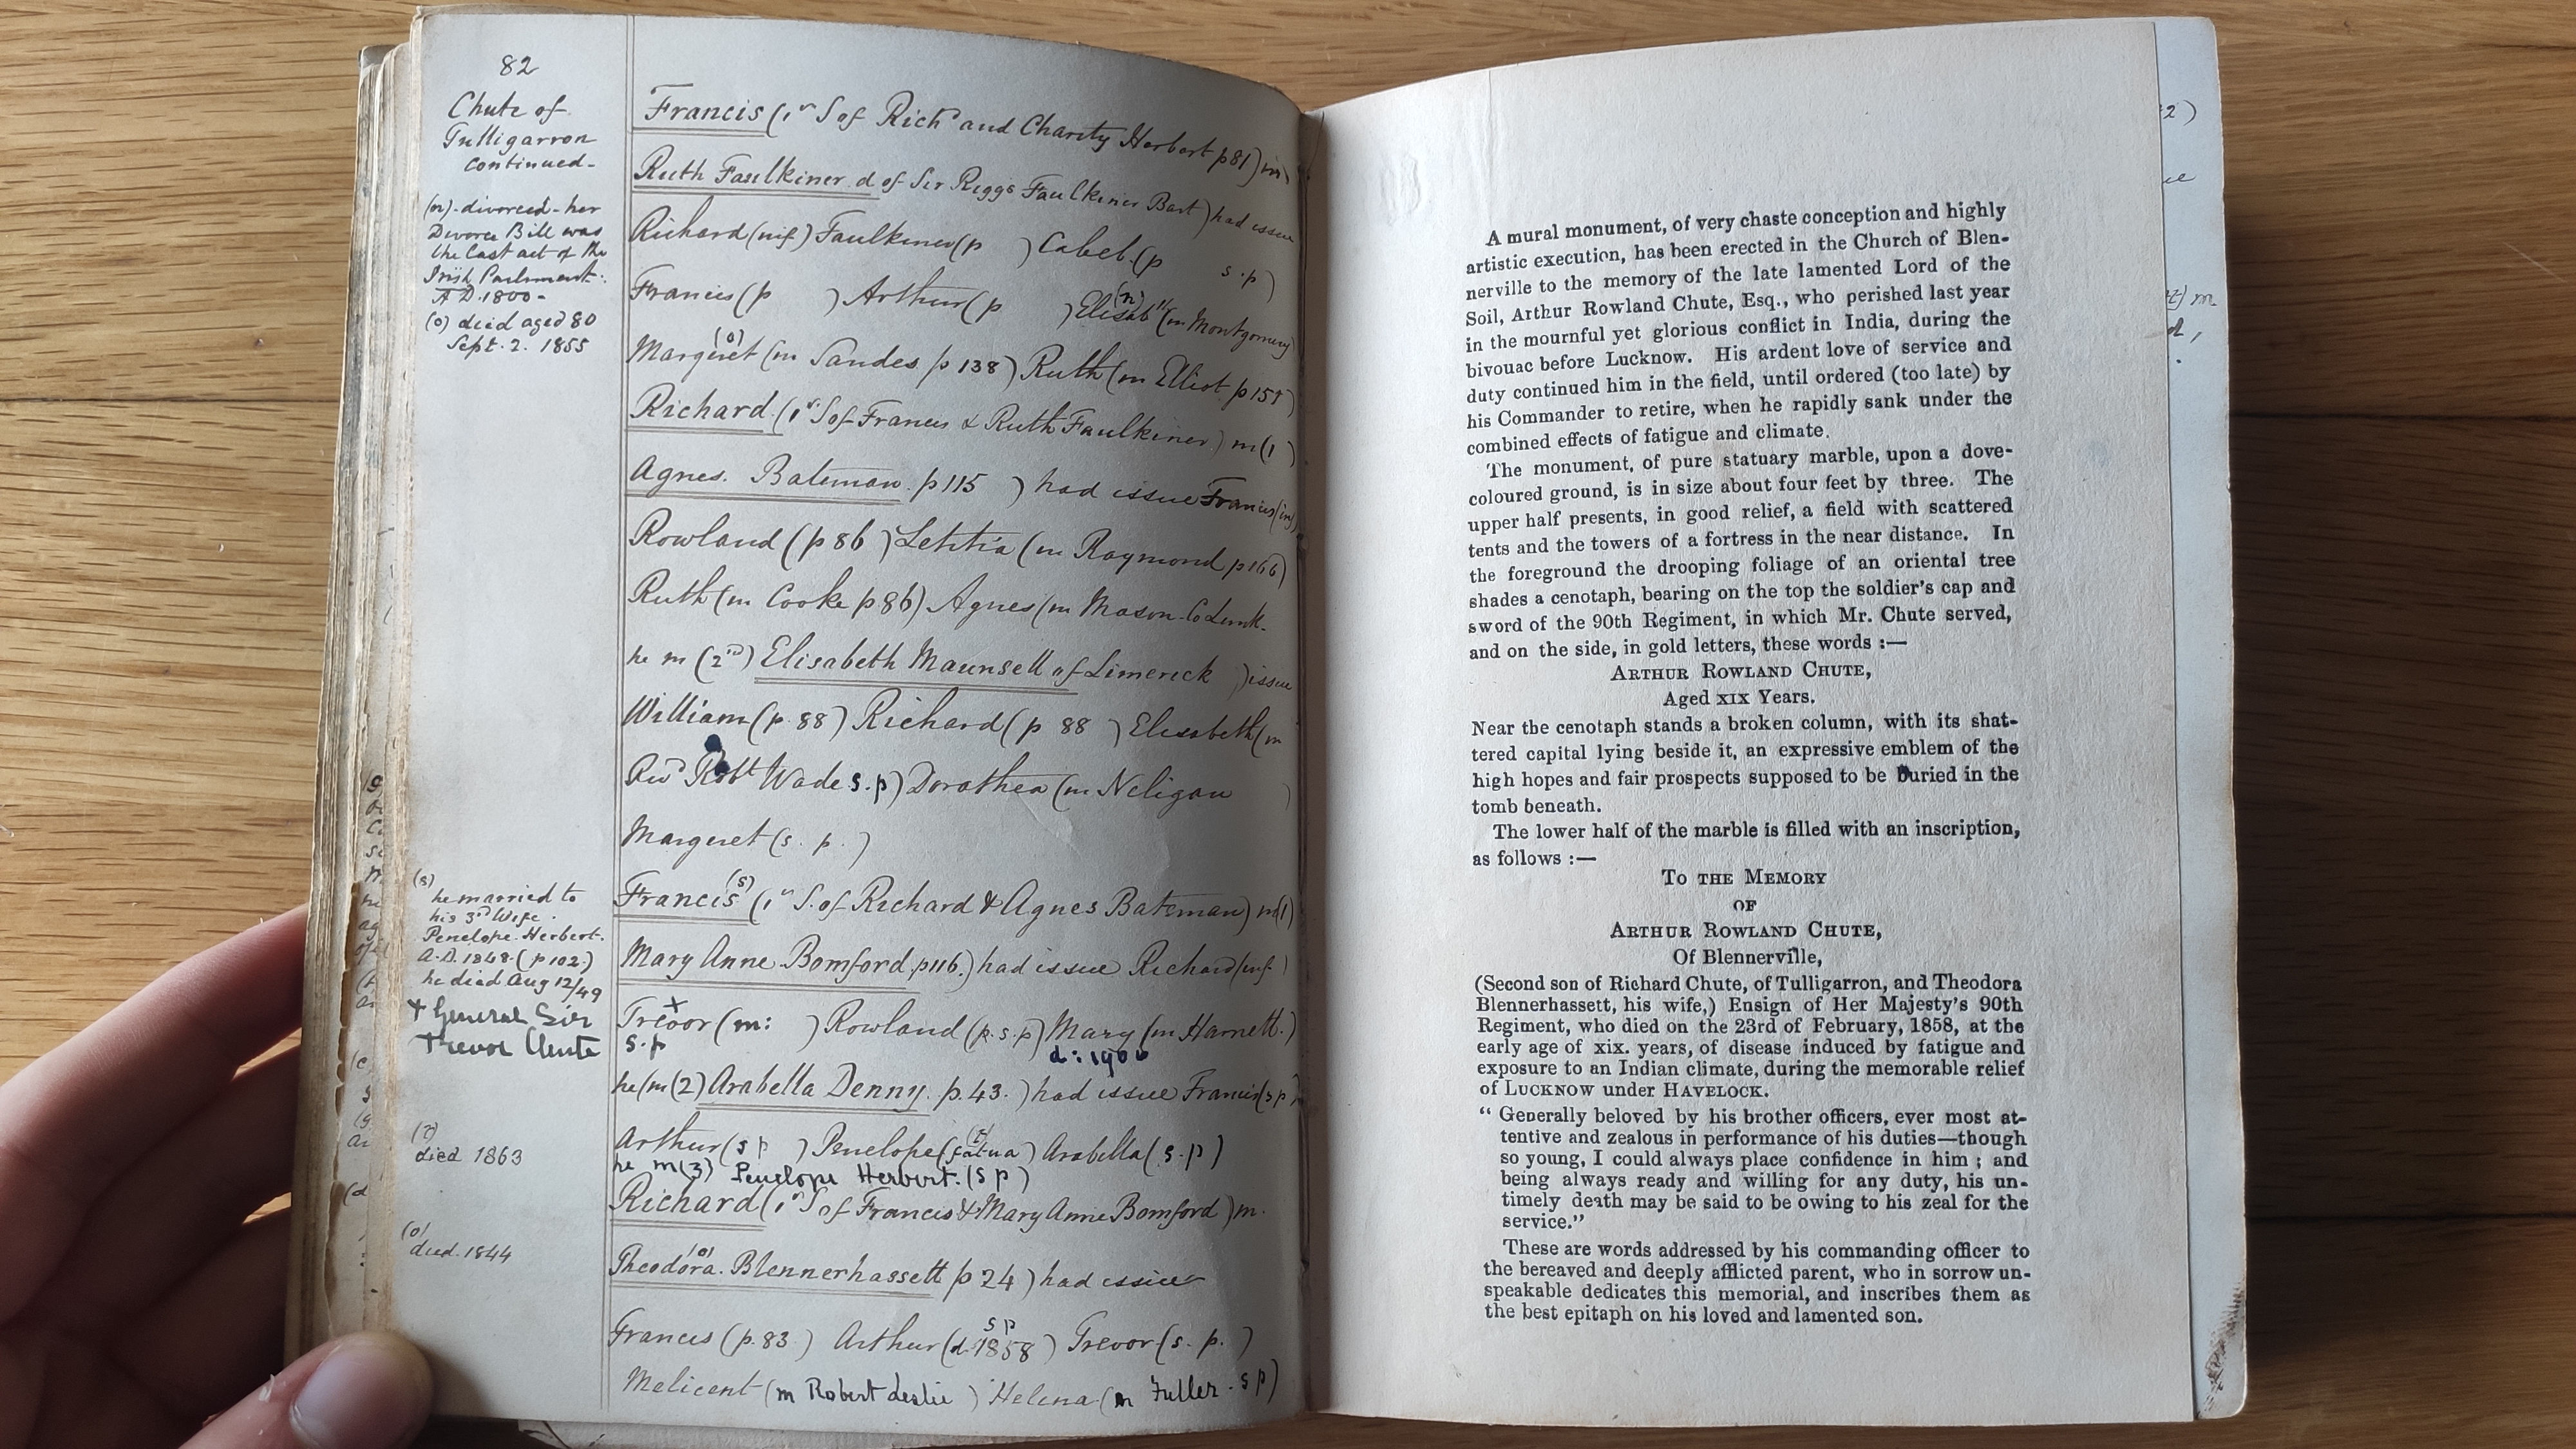 82
Chute of
Tulligarron
continued-
(n). divorced - her
Divorce Bill was
the last act of the
Irish Parliment.
A.D. 1800-
(o) died aged 80
Sept. 2. 1855
(s)
he married to
his 3rd Wife.
Penelope. Herbert.
A.D. 1848. (p 102.)
he died Aug 12/49
+ General Sir
Trevor Chute
(t)
died 1863
(o)
died. 1844
Francis (1st S of Richd and Charity Herbert p 81) m
Ruth Faulkiner d of Sir Riggs Faulkiner Bart) had issue
Richard (inf) Faulkiner (p ) Caleb. (p s.p)
Francis (p ) Arthur (p ) Elisabth (n) (m Montgomery
Margeret (o) (m Sandes p 138) Ruth (m Elliot p 15
Richard (1st S of Francis & Ruth Faulkiner) m (1 )
Agnes. Bateman. p 115 ) had issue Francis
Rowland (p 86 ) Letitia (m Raymond p 166)
Ruth (m Cooke p 86) Agnes (m Mason. Co Limk.
he m (2nd) Elisabeth Maunsell of Limerick )issue
William (p. 88) Richard (p 88 ) Elisabeth (m
Revd Robt Wade s.p) Dorothea (m Neligan )
Margeret (s. p. )
Francis (s) (1st S. of Richard & Agnes Bateman) m(1)
Mary Anne. Bomford. p 116.) had issue Richard (inf. )
Trevor x (m: ) Rowland (p. s. p) Mary (m Harnett.)
s.p d: 190
he (m (2) Arabella Denny. p. 43. ) had issue Francis (s p)
Arthur (s p ) Penelope (t) (fatua) Arabella (s. p)
he m (3) Penelope Herbert. (s p)
Richard (1st S of Francis & Mary Anne Bomford) m.
Theodora. (o) Blennerhassett p 24) had issue
Francis (p. 83 ) Arthur (d. 1858 s p) Trevor (s. p. )
Melicent (m Robert Leslie ) Helena (m Fuller. s p)
A mural monument, of very chaste conception and highly
artistic execution, has been erected in the Church of Blen-
nerville to the memory of the late lamented Lord of the
Soil, Arthur Rowland Chute, Esq., who perished last year
in the mournful yet glorious conflict in India, during the
bivouac before Lucknow. His ardent love of service and
duty continued him in the field, until ordered (too late) by
his Commander to retire, when he rapidly sank under the
combined effects of fatigue and climate.
The monument, of pure statuary marble, upon a dove-
coloured ground, is in size about four feet by three. The
upper half presents, in good relief, a field with scattered
tents and the towers of a fortress in the near distance. In
the foreground the drooping foliage of an oriental tree
shades a cenotaph, bearing on the top the soldier's cap and
sword of the 90th Regiment, in which Mr. Chute served,
and on the side, in gold letters, these words :—
ARTHUR ROWLAND CHUTE,
Aged XIX Years.
Near the cenotaph stands a broken column, with its shat-
tered capital lying beside it, an expressive emblem of the
high hopes and fair prospects supposed to be buried in the
tomb beneath.
The lower half of the marble is filled with an inscription,
as follows :—
TO THE MEMORY
OF
ARTHUR ROWLAND CHUTE,
Of Blennerville,
(Second son of Richard Chute, of Tulligarron, and Theodora
Blennerhassett, his wife,) Ensign of Her Majesty's 90th
Regiment, who died on the 23rd of February, 1858, at the
early age of xix. years, of disease induced by fatigue and
exposure to an Indian climate, during the memorable relief
of LUCKNOW under HAVELOCK.
“ Generally beloved by his brother officers, ever most at-
tentive and zealous in performance of his duties—though
so young, I could always place confidence in him ; and
being always ready and willing for any duty, his un-
timely death may be said to be owing to his zeal for the
service.”
These are words addressed by his commanding officer to
the bereaved and deeply afflicted parent, who in sorrow un-
speakable dedicates this memorial, and inscribes them as
the best epitaph on his loved and lamented son.